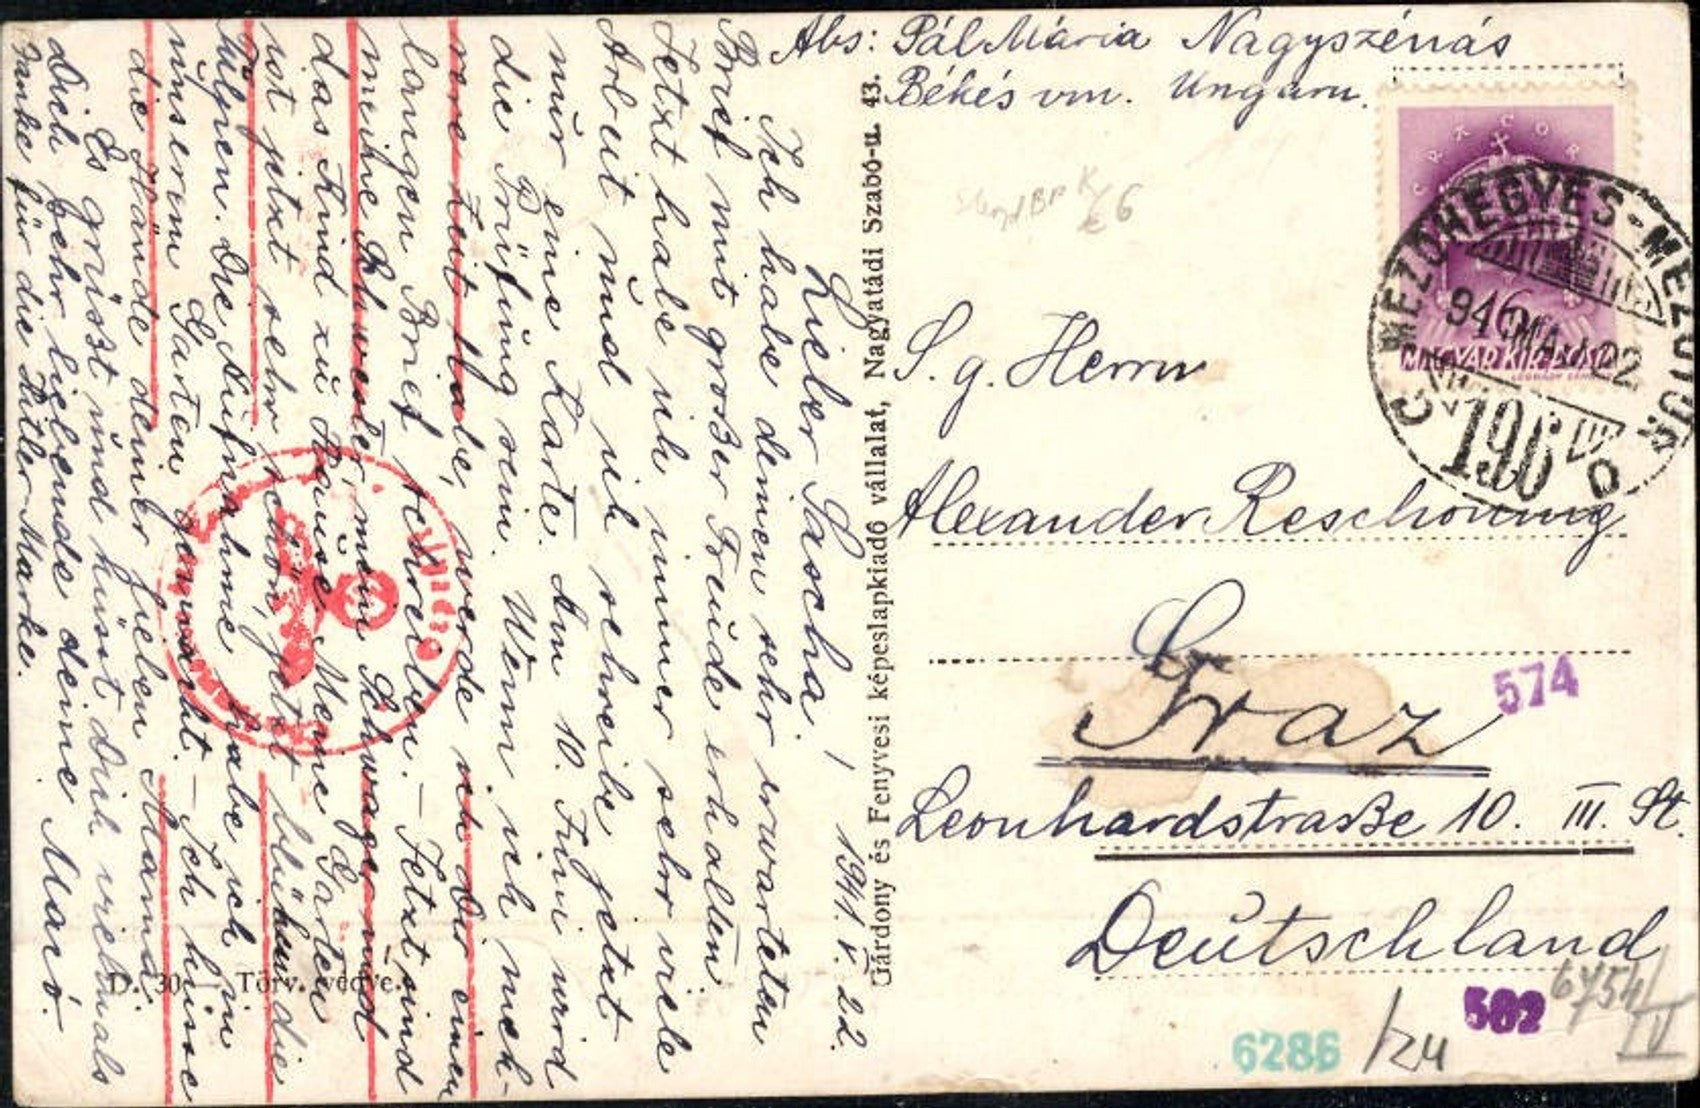 Abs: Pál Mária Nagyszénás
Békés vm. Ungarn.
Lieber Sascha!
1941. V. 22.
Ich habe deinen sehr erwarteten
Brief mit großer Freude erhalten.
Jetzt habe ich immer sehr viele
Arbeit und ich schreibe jetzt
nur eine Karte. Am 10. Juni wird
die Prüfung sein. Wenn ich meh-
rere Zeit habe, werde ich Dir einen
langen Brief schreiben. – Jetzt sind
meine Schwester, mein Schwager und
das Kind zu Hause. Meine Garten
ist jetzt sehr schön, jetzt blühen die
Tulpen. Die Aufnahme habe ich in
unserem Garten gemacht. – Ich küsse
die Hände deiner lieben Mama.
Es grüsst und küsst Dich vielmals
Dich sehr liebende deine Macó.
Danke für die Hitler-Marke.
Gárdony és Fenyvesi képeslapkiadó vállalat, Nagyatádi Szabó-u. 43.
D. 30. Törv. védve.
MAGYAR KIR. POSTA
MEZŐHEGYES-MEZŐTÚR
941 MÁJ 22
196
S. g. Herrn
Alexander Reschounig
Graz
574
Leonhardstraße 10. III. St.
Deutschland
502
6754/V
6286 /24